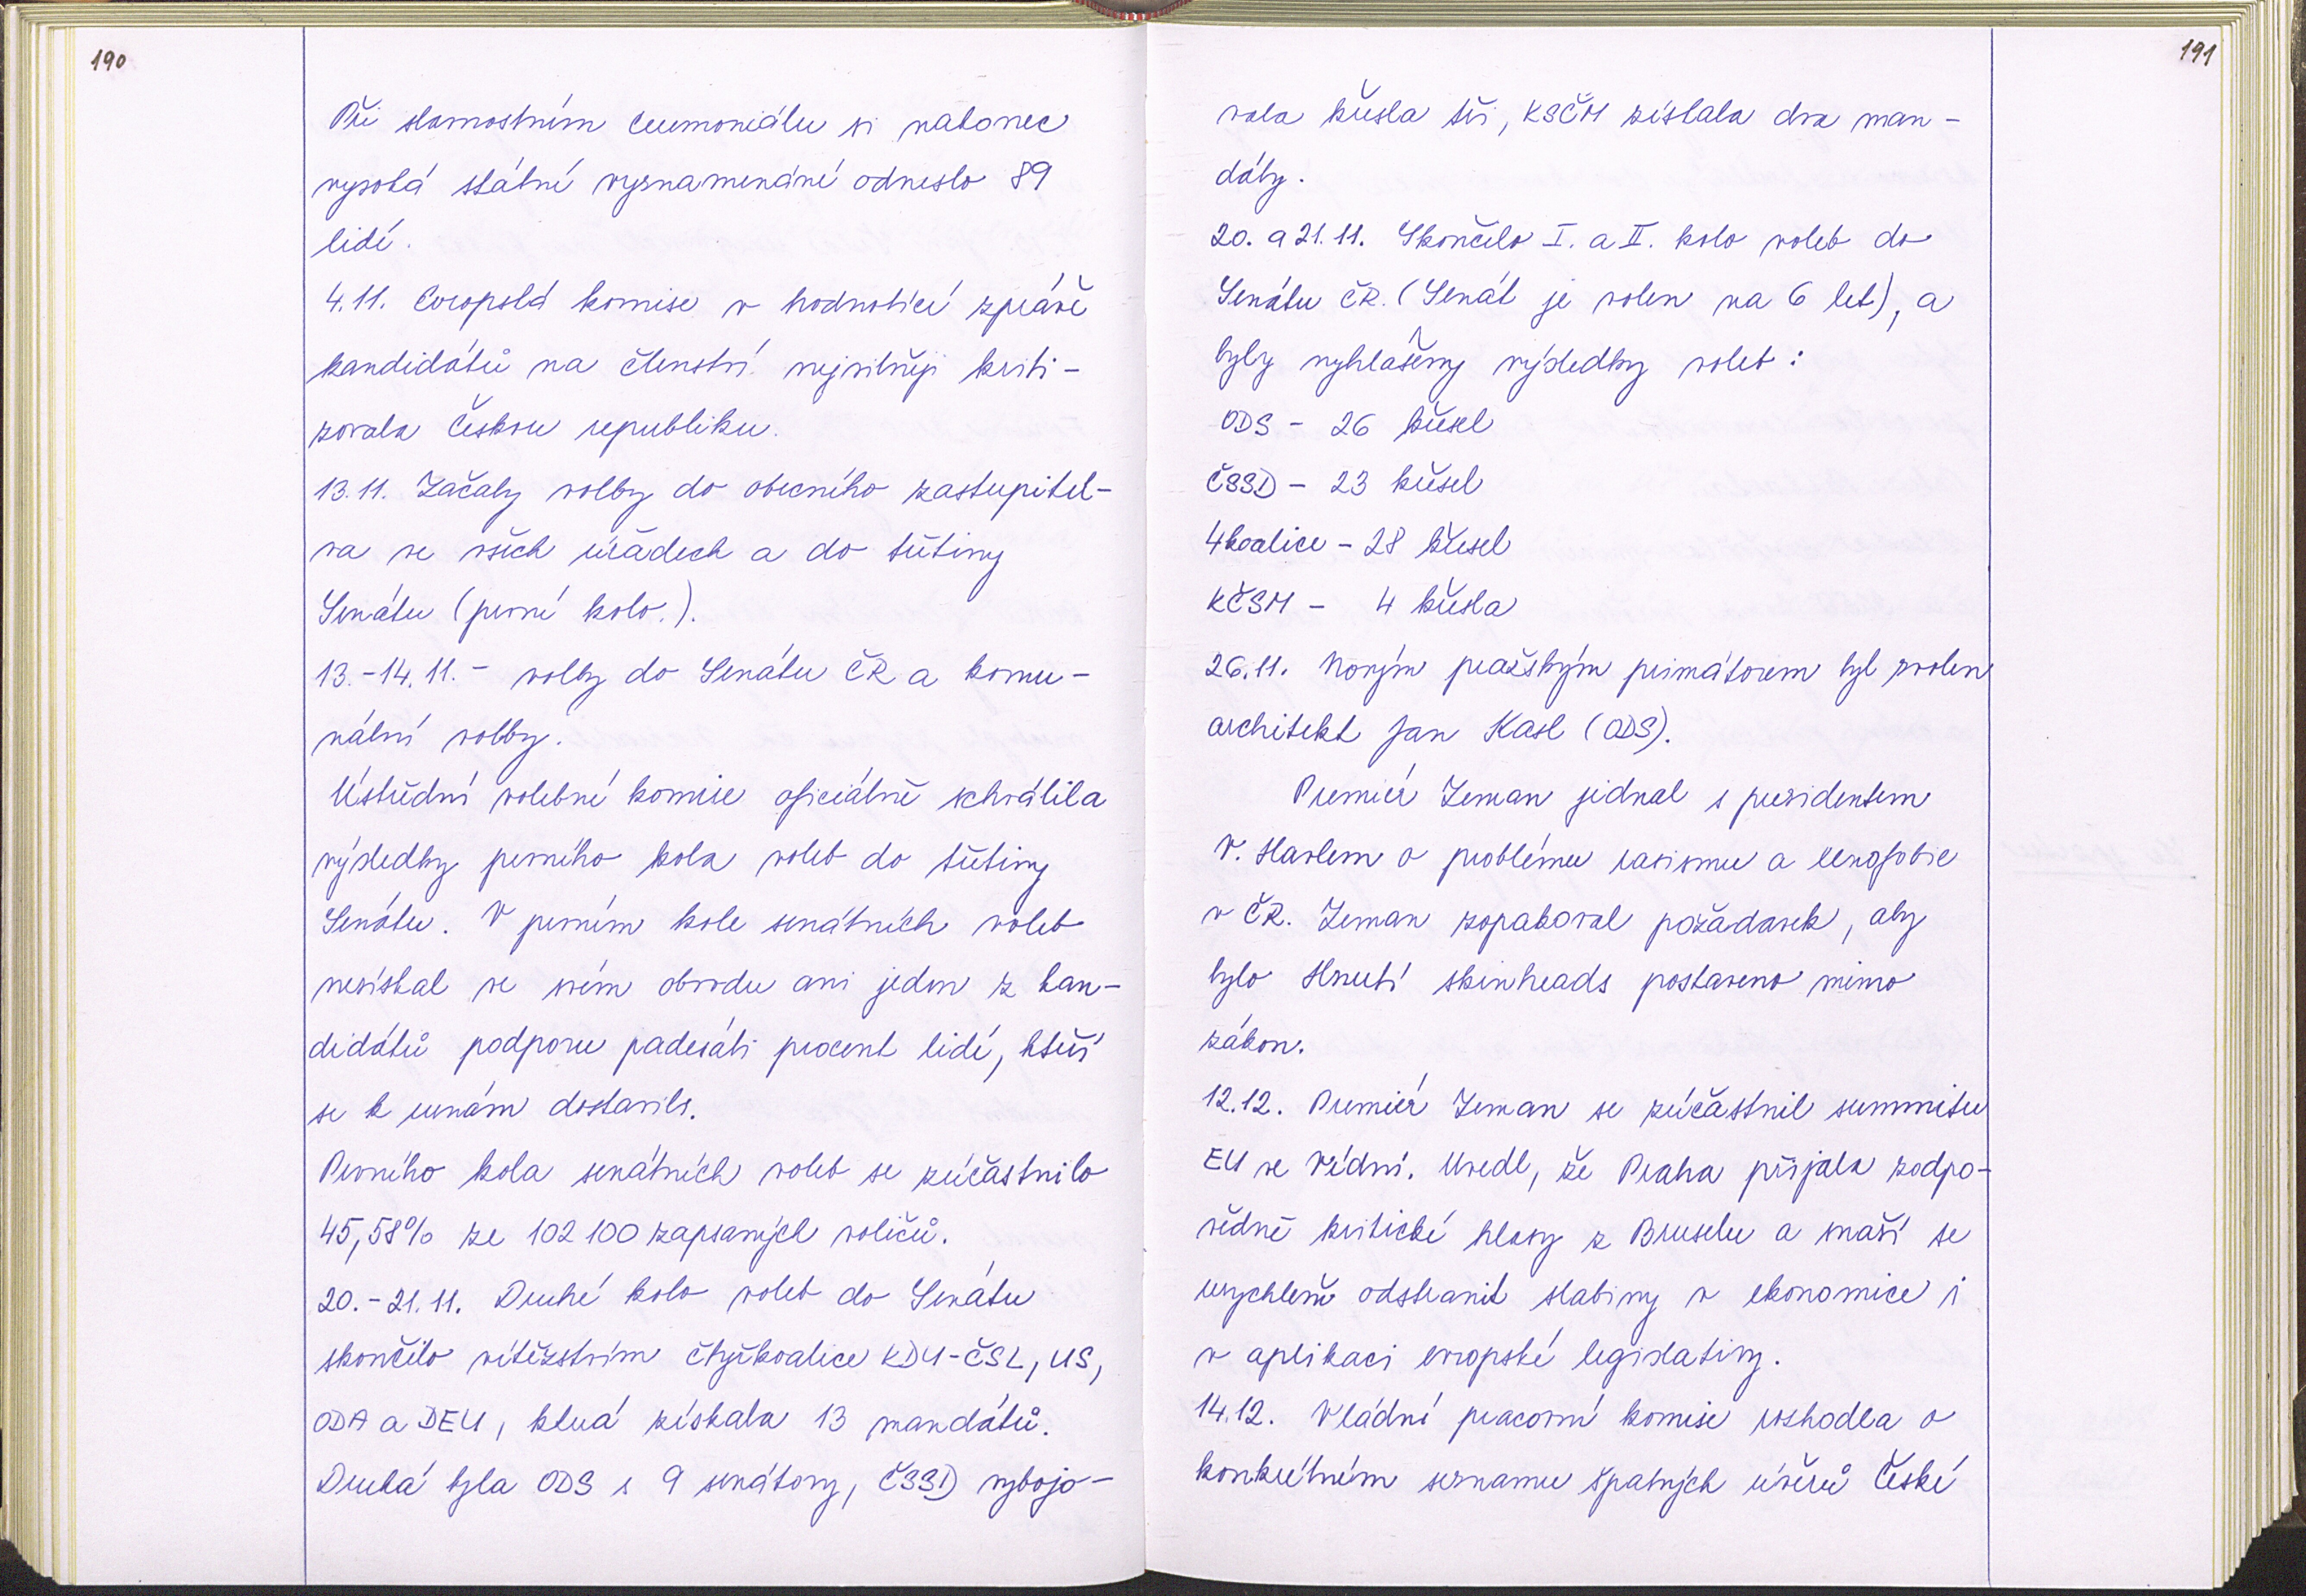 190
Při slavnostním ceremoniálu si nakonec
vysoká státní vyznamenání odneslo 89
lidí.
4.11. Evropská komise v hodnotící zpráve
kandidátů na členství nejsilněji kriti-
zovala Českou republiku.
13.11. Začaly volby do obecního zastupitel-
va ve všech úřadech a do třetiny
Senátu (první kolo.).
13.-14.11. - volby do Senátu ČR a komu-
nální volby.
Ústřední volební komise oficiálně schválila
výsledky prvního kola voleb do třetiny
Senátu. V prvním kole senátních voleb
nezískal ve svém obvodu ani jeden z kan-
didátů podporu padesáti procent lidí, kteří
se k urnám dostavili.
Prvního kola senátních voleb se zúčastnilo
45,58% ze 102 100 zapsaných voličů.
20.-21.11. Druhé kolo voleb do Senátu
skončilo vítězstvím čtyřkoalice KDU-ČSL, US,
ODA a DEU, která získala 13 mandátů.
Druhá byla ODS s 9 senátory, ČSSD vybojo-
191
vala křesla tři, KSČM získala dva man-
dáty.
20. a 21.11. Skončilo I. a II. kolo voleb do
Senátu ČR. (Senát je volen na 6 let), a
byly vyhlášeny výsledky voleb:
ODS - 26 křesel
ČSSD - 23 křesel
4koalice - 28 křesel
KČSM - 4 křesla
26.11. Novým pražským primátorem byl zvolen
architekt Jan Kasl (ODS).
Premiér Zeman jednal s prezidentem
V. Havlem o problému rasismu a xenofobie
v ČR. Zeman zopakoval požadavek, aby
bylo Hnutí skinheads postaveno mimo
zákon.
12.12. Premiér Zeman se zúčastnil summitu
EU ve Vídni. Uvedl, že Praha přijala zodpo-
vědně kritické hlasy z Bruselu a snaží se
urychleně odstranit slabiny v ekonomice i
v aplikaci evropské legislativy.
14.12. Vládní pracovní komise rozhodla o
konkrétním seznamu špatných úvěrů České